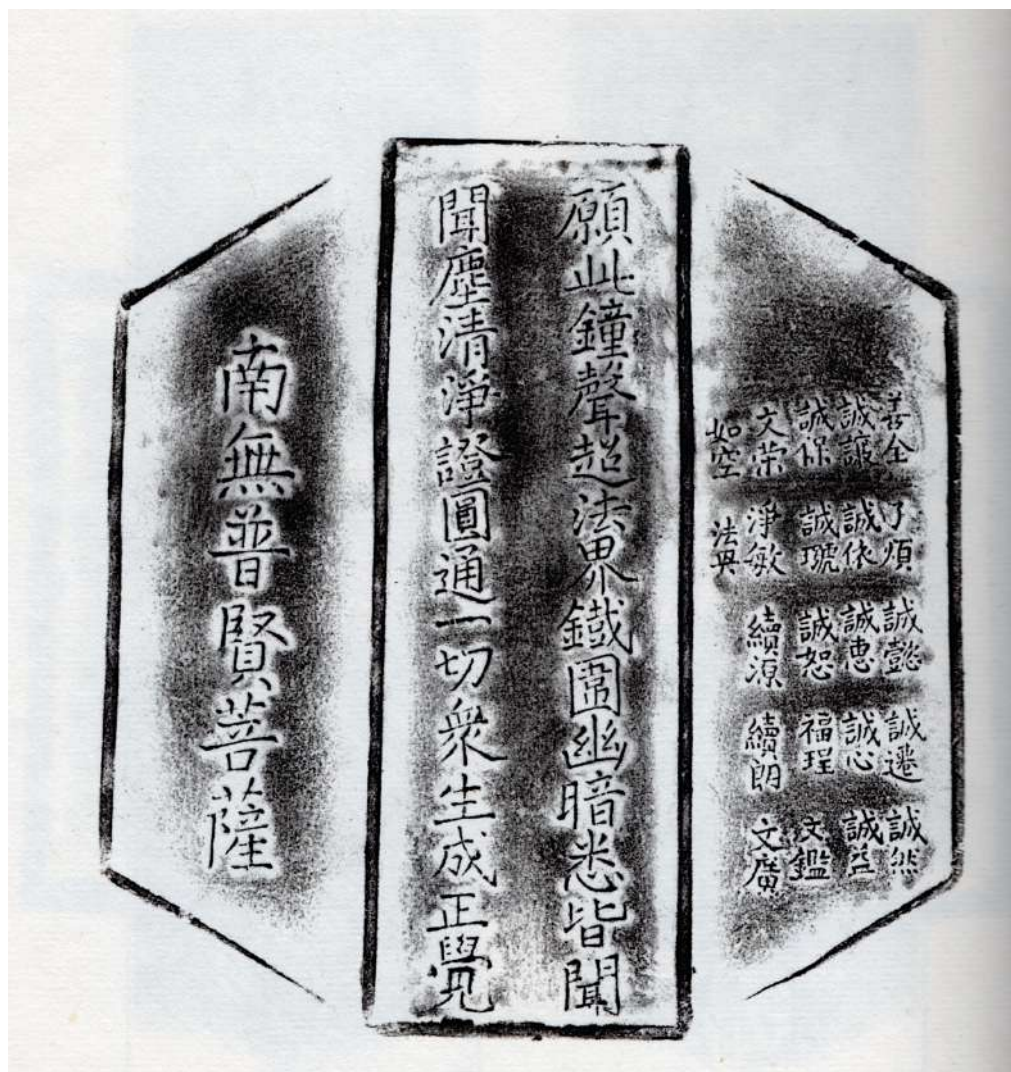 善全 了煩 誠懿 誠遷 誠然
誠 誠依 誠恵 誠心 誠益
誠保 誠琥 誠恕 福珵 文鑑
文荣 淨敏 續 續朗 文廣
如空 法
願此鐘聲超法界鐵圍幽暗悉皆聞
聞塵清淨證圓通一切衆生成正覺
南無普賢菩薩